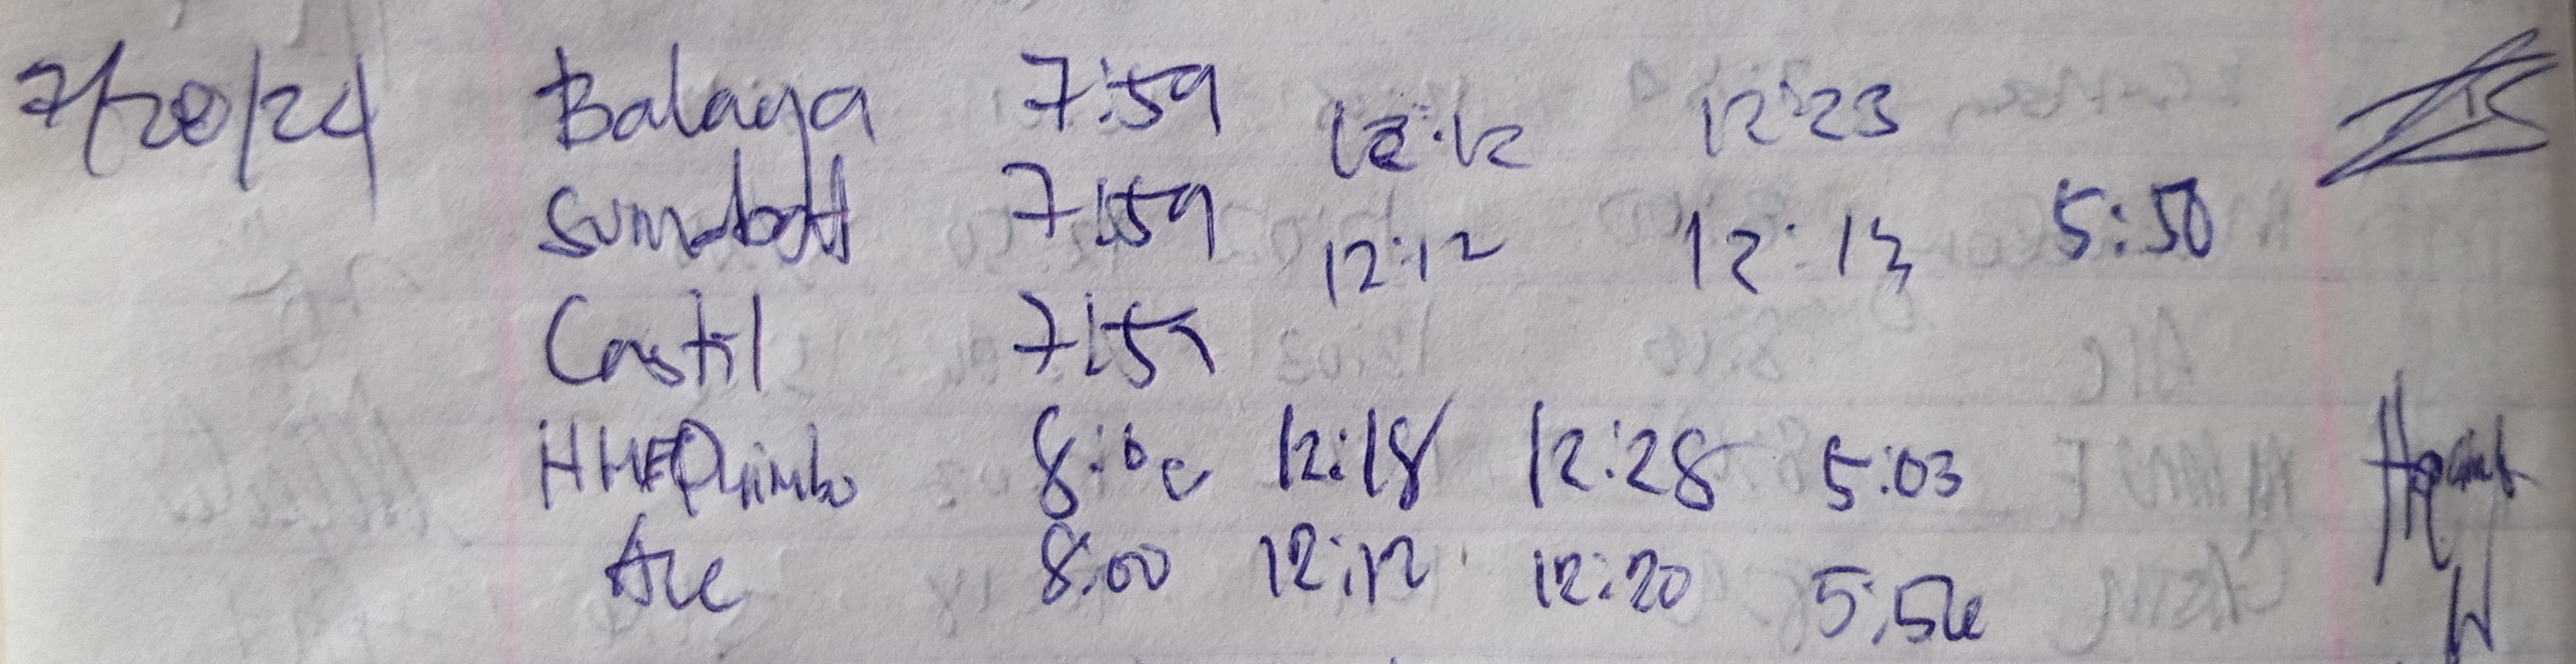 7/20/24 Balaga 7:59 12:12 12:23
7:59 12:12 12:13 5:50
Castil 7:59
HHEQuimbo 8:00 12:18 12:28 5:03
Ace 8:00 12:12 12:20 5:54